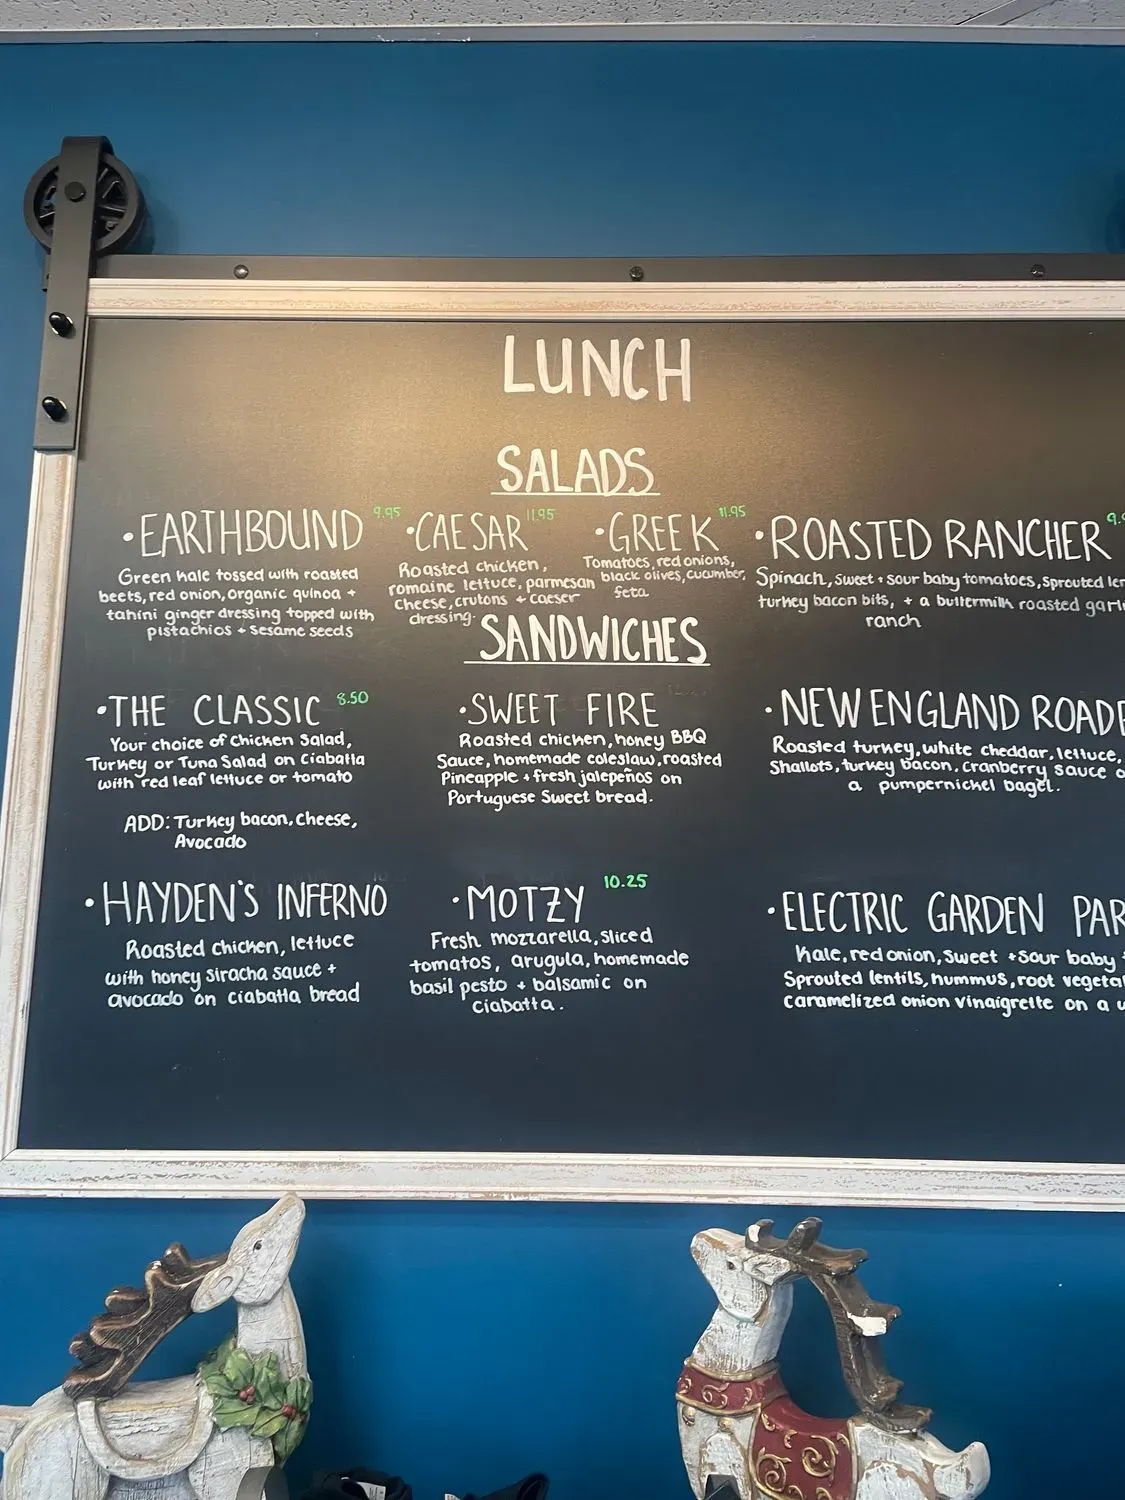 LUNCH
SALADS
• EARTHBOUND 9.95
Green kale tossed with roasted
beets, red onion, organic quinoa +
tahini ginger dressing topped with
pistachios + sesame seeds
• CAESAR 11.95
Roasted chicken,
romaine lettuce, parmesan
cheese, crutons + caeser
dressing.
• GREEK 11.95
Tomatoes, red onions,
black olives, cucumber,
feta
• ROASTED RANCHER
Spinach, sweet + sour baby tomatoes, sprouted
turkey bacon bits, + a buttermilk roasted
ranch
SANDWICHES
• THE CLASSIC 8.50
Your choice of Chicken Salad,
Turkey or Tuna Salad on Ciabatta
with red leaf lettuce or tomato
ADD: Turkey bacon, cheese,
Avocado
• SWEET FIRE
Roasted chicken, honey BBQ
Sauce, homemade coleslaw, roasted
Pineapple + fresh jalepeños on
Portuguese Sweet bread.
• NEW ENGLAND
Roasted turkey, white cheddar, lettuce,
Shallots, turkey bacon, cranberry sauce
a pumpernickel bagel.
• HAYDEN'S INFERNO
Roasted chicken, lettuce
with honey siracha sauce +
avocado on ciabatta bread
• MOTZY 10.25
Fresh mozzarella, sliced
tomatos, arugula, homemade
basil pesto + balsamic on
Ciabatta.
• ELECTRIC GARDEN
Kale, red onion, sweet + sour baby
Sprouted lentils, hummus, root
caramelized onion vinaigrette on a